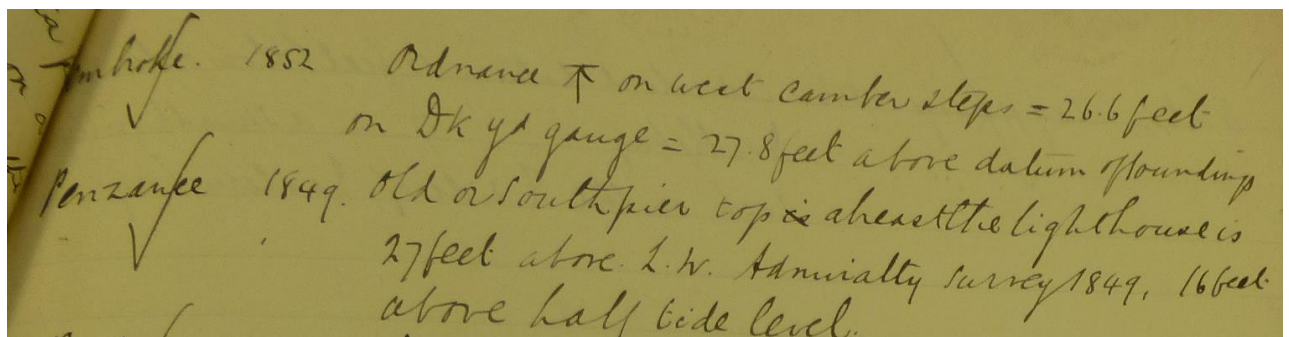 Pembroke. 1852 Ordnance ↑ on west camber steps = 26.6 feet
on Dk yd gauge = 27.8 feet above datum of soundings
Penzance 1849. Old or South pier top is abreast the lighthouse is
27 feet above L.W. Admiralty Survey 1849, 16 feet
above half tide level.